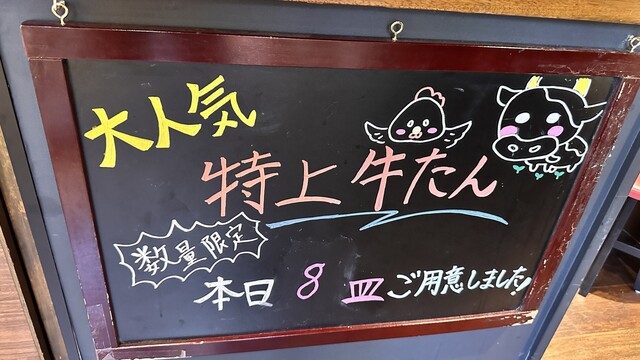 大人気
特上牛たん
数量限定
本日 8 皿 ご用意しました!